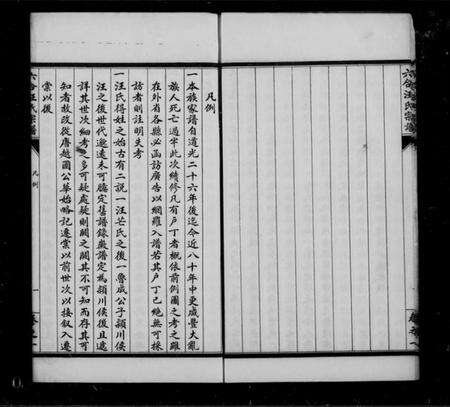 凡例
一本族家譜自道光二十六年後迄今近八十年中更咸豐大亂
族人死亡過半此次續修凡有戶丁者概依前例圖之考之雖
在外省各縣必函訪廣告以網羅入譜若其戶丁已絕無可採
訪者則註明失考
一汪氏得姓之始古有二說一汪芒氏之後一魯成公子潁川侯
汪之後世代邈遠未可臆定舊譜錄徽譜定為潁川侯後且述
詳其世次細考之多可疑處疑則闕之闕其不可知而存其可
知者故改從唐越國公華始略記遷棠以前世次以接叙入遷
棠以後
六合汪氏宗譜
凡例
一
卷之一